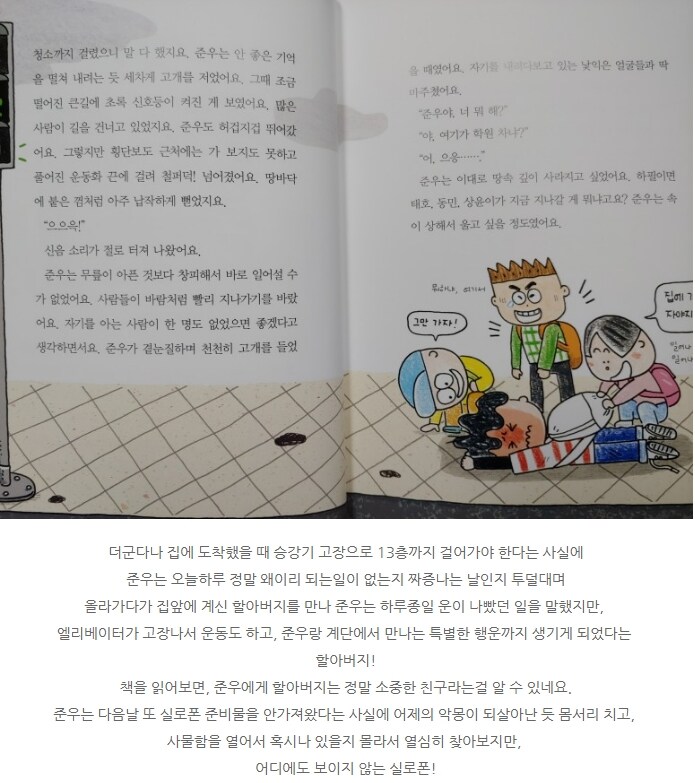 청소까지 걸렸으니 말 다 했지요. 준우는 안 좋은 기억
을 떨쳐 내려는 듯 세차게 고개를 저었어요. 그때 조금
떨어진 큰길에 초록 신호등이 켜진 게 보였어요. 많은
사람이 길을 건너고 있었지요. 준우도 허겁지겁 뛰어갔
어요. 그렇지만 횡단보도 근처에는 가 보지도 못하고
풀어진 운동화 끈에 걸려 철퍼덕! 넘어졌어요. 땅바닥
에 붙은 껌처럼 아주 납작하게 뻗었지요.
"으으윽!"
신음 소리가 절로 터져 나왔어요.
준우는 무릎이 아픈 것보다 창피해서 바로 일어설 수
가 없었어요. 사람들이 바람처럼 빨리 지나가기를 바랐
어요. 자기를 아는 사람이 한 명도 없었으면 좋겠다고
생각하면서요. 준우가 곁눈질하며 천천히 고개를 들었
을 때였어요. 자기를 내려다보고 있는 낯익은 얼굴들과 딱
마주쳤어요.
"준우야, 너 뭐 해?"
"야, 여기가 학원 차냐?"
"어, 으응……."
준우는 이대로 땅속 깊이 사라지고 싶었어요. 하필이면
태호, 동민, 상윤이가 지금 지나갈 게 뭐냐고요? 준우는 속
이 상해서 울고 싶을 정도였어요.
뭐하냐, 여기서
그만 가자!
집에 가
자야지
일어나
일어나
더군다나 집에 도착했을 때 승강기 고장으로 13층까지 걸어가야 한다는 사실에
준우는 오늘하루 정말 왜이리 되는일이 없는지 짜증나는 날인지 투덜대며
올라가다가 집앞에 계신 할아버지를 만나 준우는 하루종일 운이 나빴던 일을 말했지만,
엘리베이터가 고장나서 운동도 하고, 준우랑 계단에서 만나는 특별한 행운까지 생기게 되었다는
할아버지!
책을 읽어보면, 준우에게 할아버지는 정말 소중한 친구라는걸 알 수 있네요.
준우는 다음날 또 실로폰 준비물을 안가져왔다는 사실에 어제의 악몽이 되살아난 듯 몸서리 치고,
사물함을 열어서 혹시나 있을지 몰라서 열심히 찾아보지만,
어디에도 보이지 않는 실로폰!